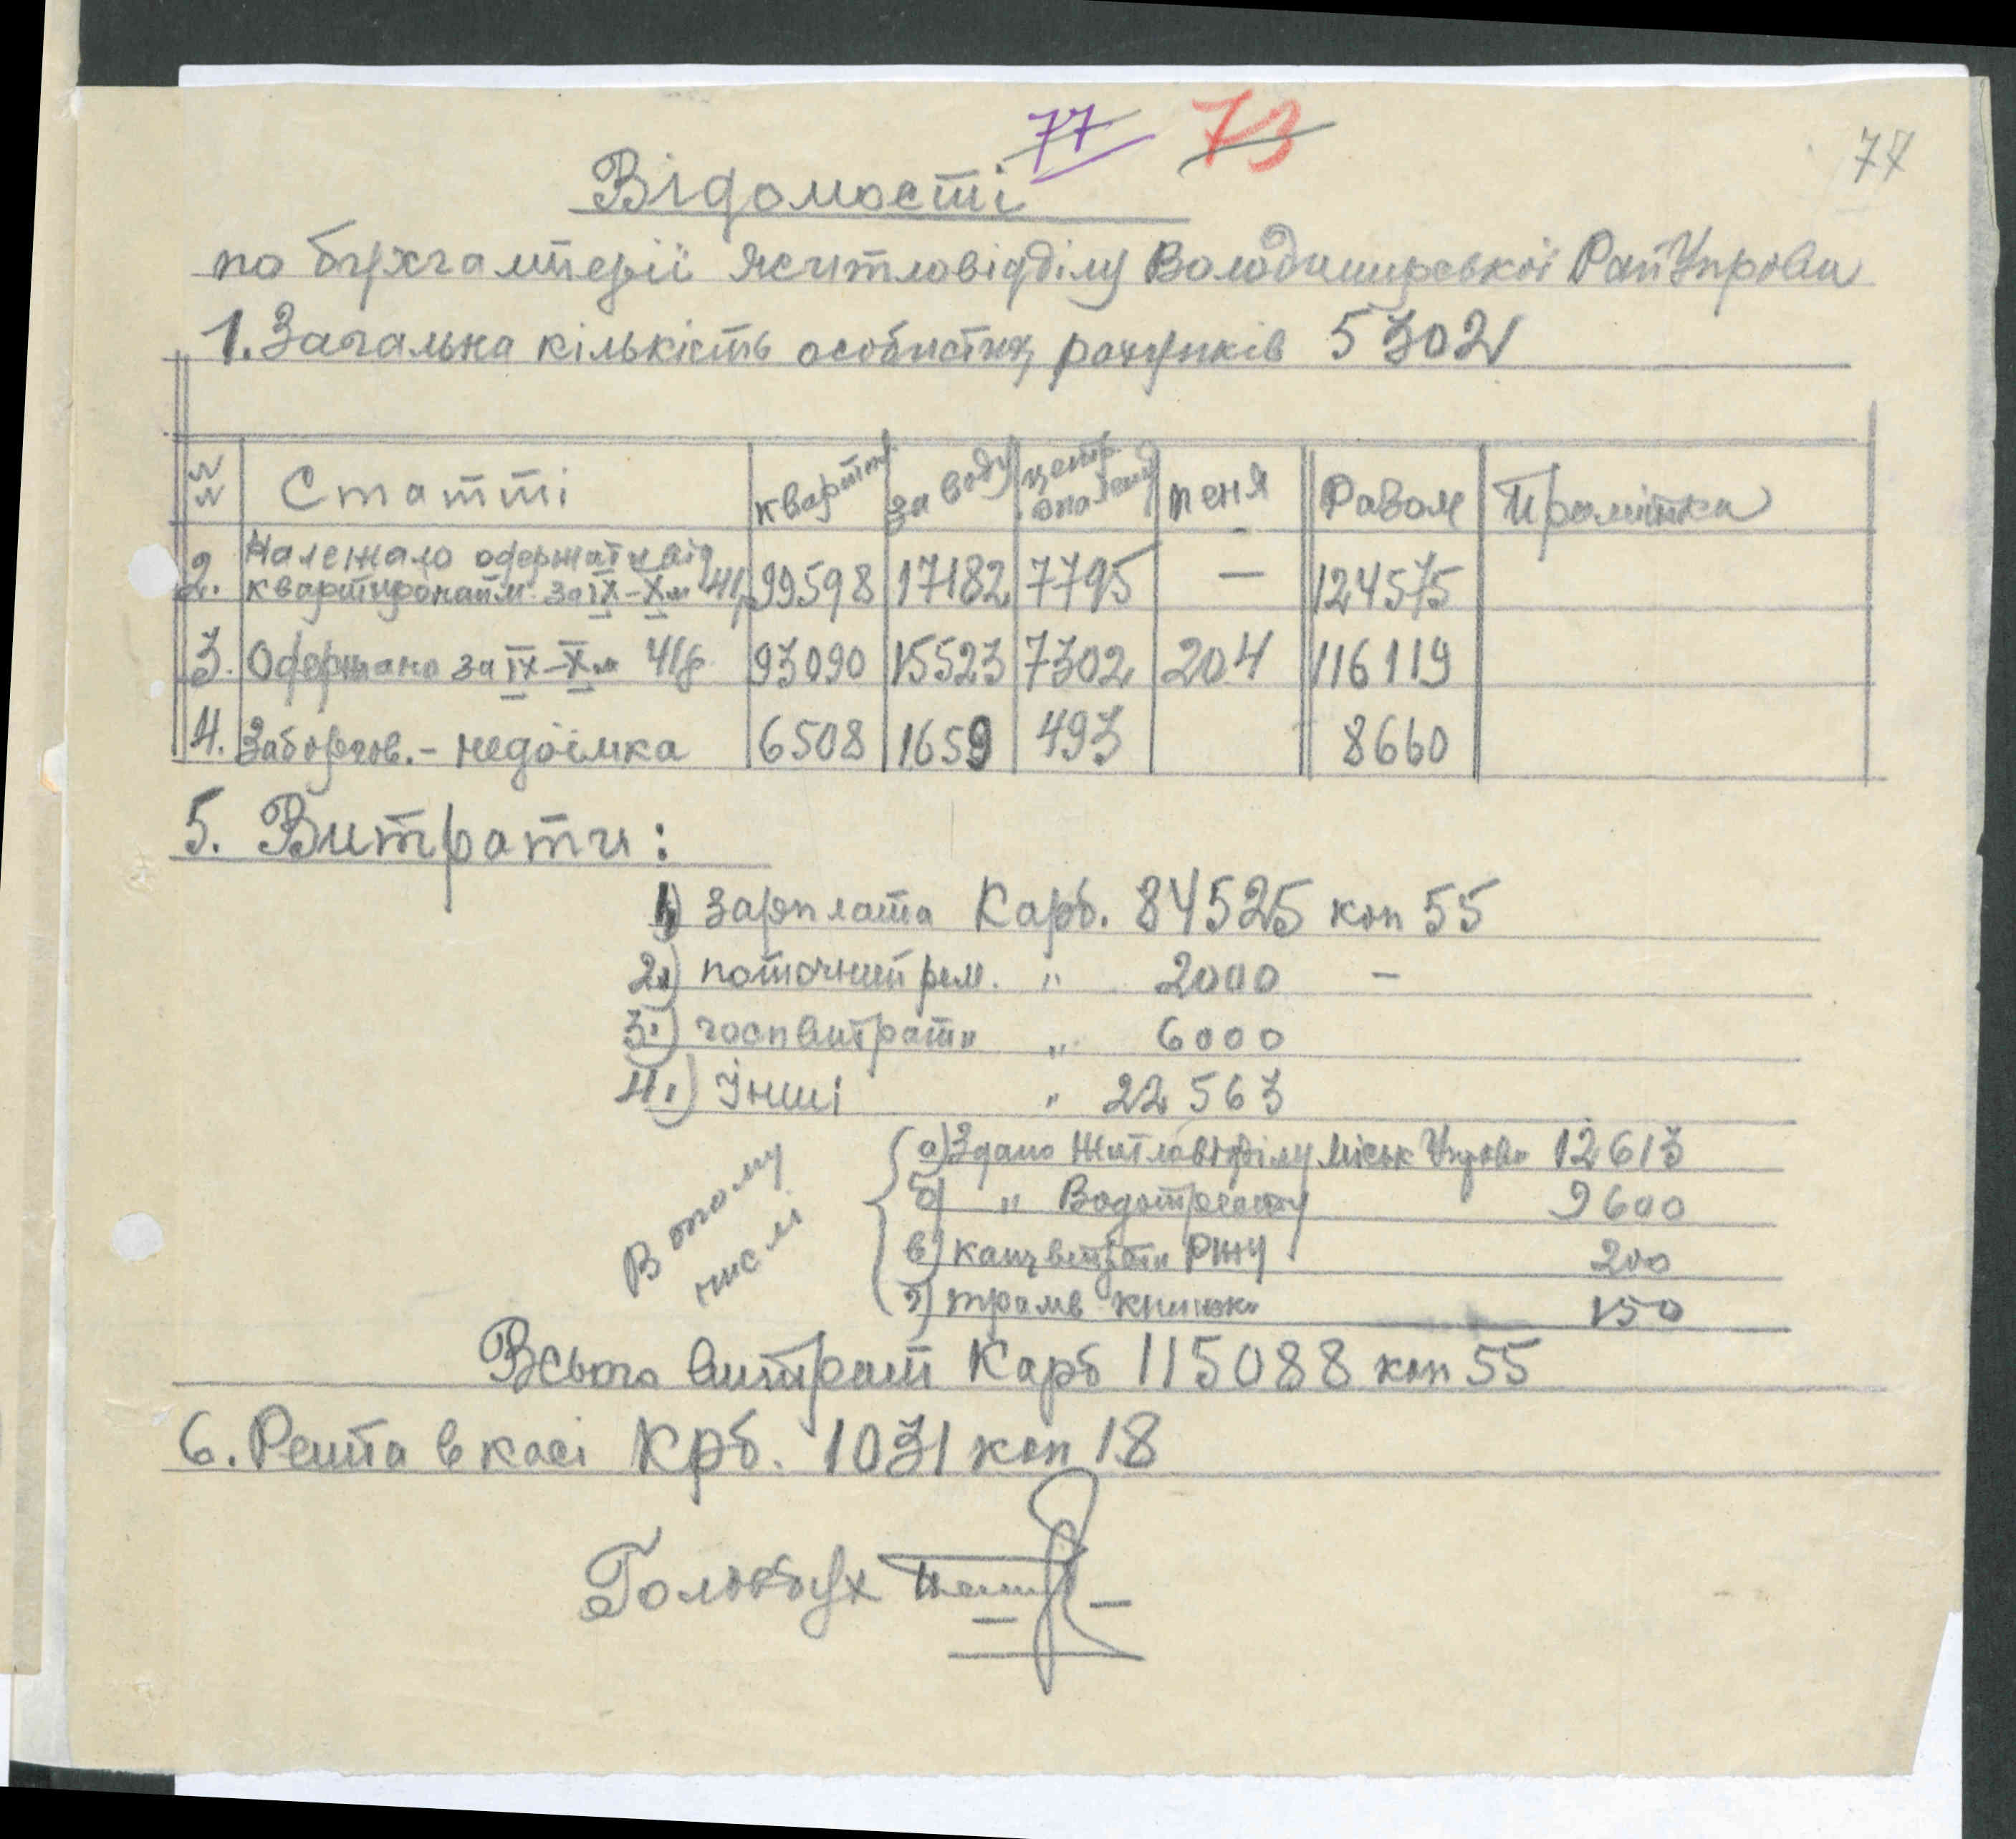 77 73 77
Відомості
по бухгалтерії житловідділу Володимирської РайУправи
1. Загальна кількість особистих рахунків 5302
№№ Статті квартпл. за воду центр. опалення пеня Разом Примітка
2. Належало одержати від квартиронайм. за IX–X м 41р 99598 17182 7795 — 124575
3. Одержано за IX–X м 41р. 93090 15523 7302 204 116119
4. Заборгов. – недоїмка 6508 1659 493 8660
5. Витрати:
1) зарплата Карб. 84525 коп 55
2.) поточний рем. " 2000 –
3.) госпвитрати " 6000
4.) Інші " 22563
В тому числі
а) Здано Житловідділу Міськ Управи 12613
б) " Водотресту 9600
в) канцвитрати РЖУ 200
г) трамв книжки 150
Всього витрат Карб 115088 коп 55
6. Решта в касі Крб. 1031 коп 18
Головбух